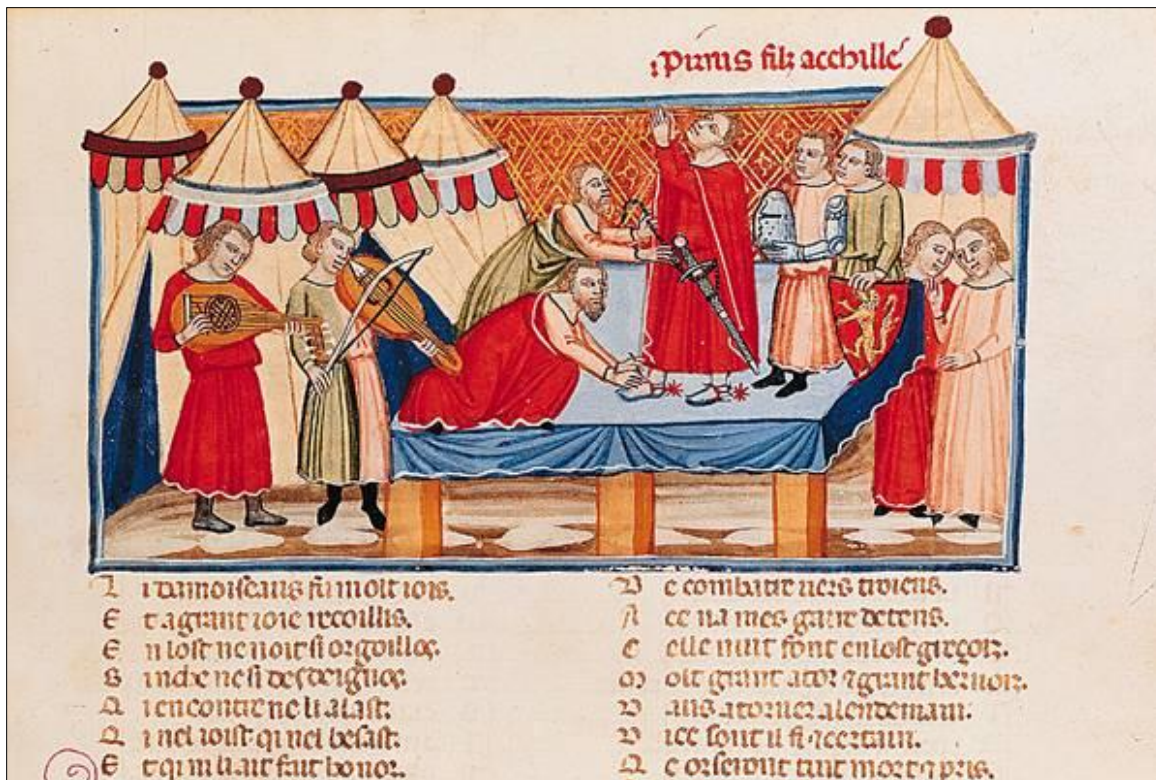 pirrus filz acchille
L i damoiseaus fu molt iois.
E t a grant ioie recoillis.
E n lost ne noit si orgoillos.
ne si desdeignos.
Q i encontre ne li alast.
Q i nel ioist qi nel besast.
E t qi fait honor.
D e combatre uers troiens.
A ce na mes grant de tens.
C elle nuit font en lost grezois.
M olt grant ator & grant
atorner a lendemain.
D ice sont il fi & certain.
Q e or seront tuit mort & pris.